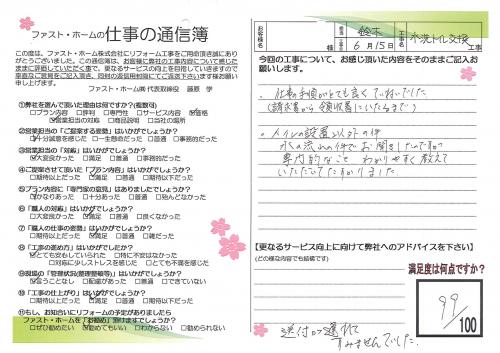 ファスト・ホームの 仕事の通信簿
この度は、ファスト・ホーム株式会社にリフォーム工事をご用命頂き誠にあり
がとうございました。この通信簿は、お客様に弊社の工事内容について感じた
ままに評価していただく事で、更なるサービスの向上を目指していきますので
率直なご意見をご記入頂き、同封の返信用封筒にてご返送下さいます様お願い
申し上げます。
ファスト・ホーム㈱ 代表取締役 藤原 学
①弊社を選んで頂いた理由は何ですか？(複数可)
□プラン内容 □評判 □専門性 □サービス内容 □価格
□営業担当の対応 □商品説明 □会社の場所
②営業担当の「ご提案する姿勢」はいかがでしょうか？
□十分誠意を感じた □一生懸命だった □普通 □事務的だった
③営業担当の「対応」はいかがでしょうか？
□大変良かった □満足 □普通 □事務的だった
④ご提案させて頂いた「プラン内容」はいかがでしょうか？
□期待以上だった □満足 □普通 □期待以下だった
⑤プラン内容に「専門家の意見」はありましたでしょうか？
□かなりあった □十分あった □普通 □殆どなかった
⑥「職人の対応」はいかがでしょうか？
□大変良かった □満足 □普通 □良くなかった
⑦「職人の仕事の姿勢」はいかがでしょうか？
□期待以上だった □満足 □普通 □雑だった
⑧「工事の進め方」はいかがでしたか？
□とても安心していられた □特に不安はなかった
□対応に少しストレスを感じた □とても不満を感じた
⑨現場の「管理状況(整理整頓等)」はいかがでしょうか？
□言うことなし □配慮があった □普通 □できていない
⑩「工事の仕上がり」はいかがでしょうか？
□期待以上だった □満足 □普通 □期待以下だった
⑪もし、お知り合いにリフォームの予定がありましたら
ファスト・ホームを「お勧め」頂けますでしょうか？
□ぜひ勧めたい □勧めてもいい □わからない □勧められない
お客様名 鈴木 様
工期 6月15日
工事名 水洗トイレ交換 工事
今回の工事について、お感じ頂いた内容をそのままご記入お
願いします。
・仕事の手順がとても良くていねいでした
(請求書から領収書にいたるまで)
・トイレの設置以外の件
水の流れの件でお聞きしたのですが
専門的なこと わかりやすく教えて
いただいてたすかりました
【更なるサービス向上に向けて弊社へのアドバイスを下さい】
(どの様な内容でも結構です)
満足度は何点ですか？
99
/100
送付が遅れて
すみませんでした。